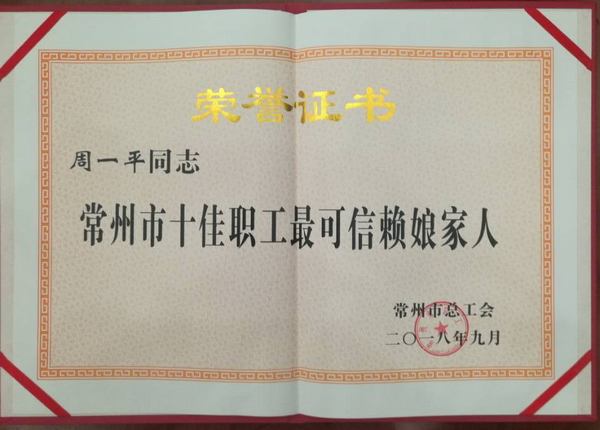 荣誉证书
周一平同志
常州市十佳职工最可信赖娘家人
常州市总工会
二〇一八年九月